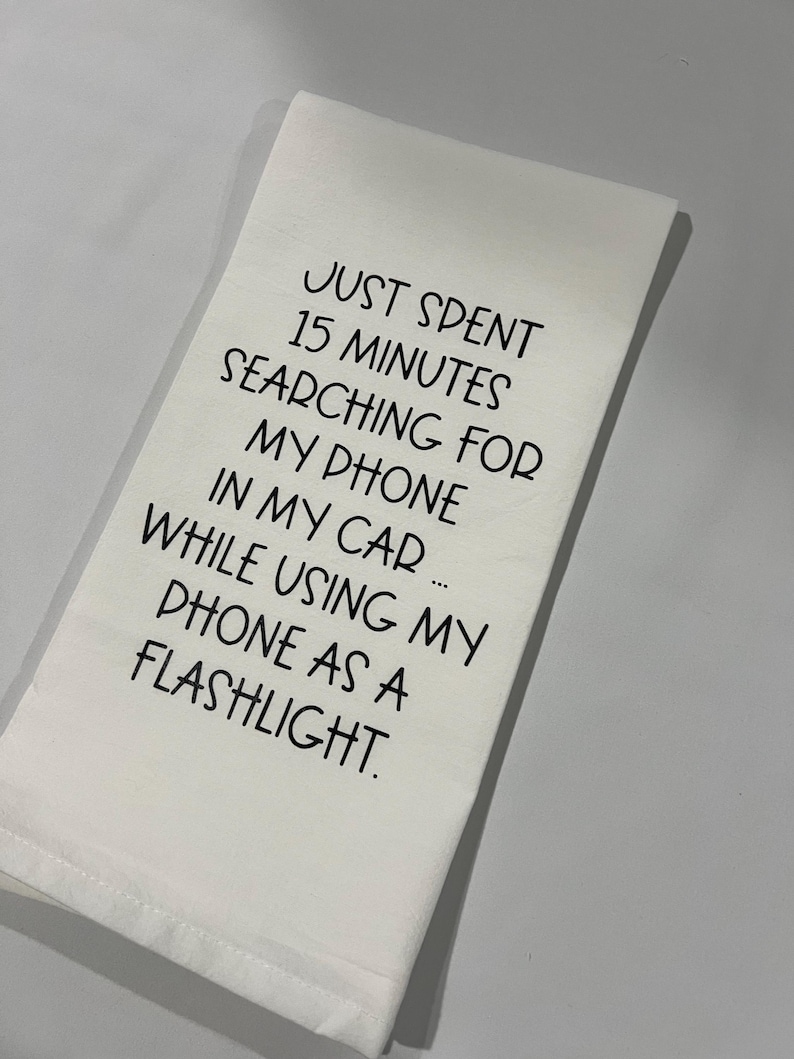 JUST SPENT
15 MINUTES
SEARCHING FOR
MY PHONE
IN MY CAR ...
WHILE USING MY
PHONE AS A
FLASHLIGHT.